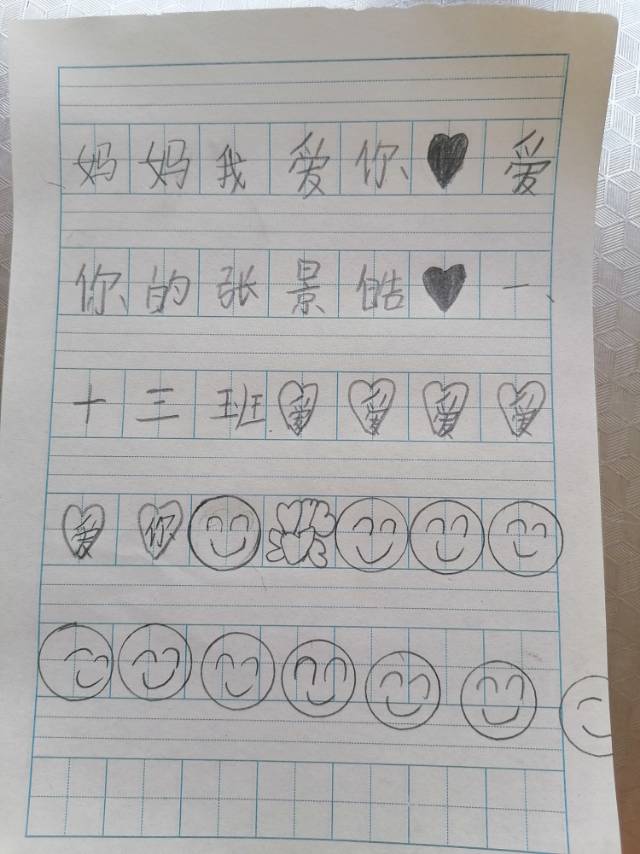 妈妈我爱你、♥爱
你、的张景皓♥一、
十三班爱爱爱爱
爱你